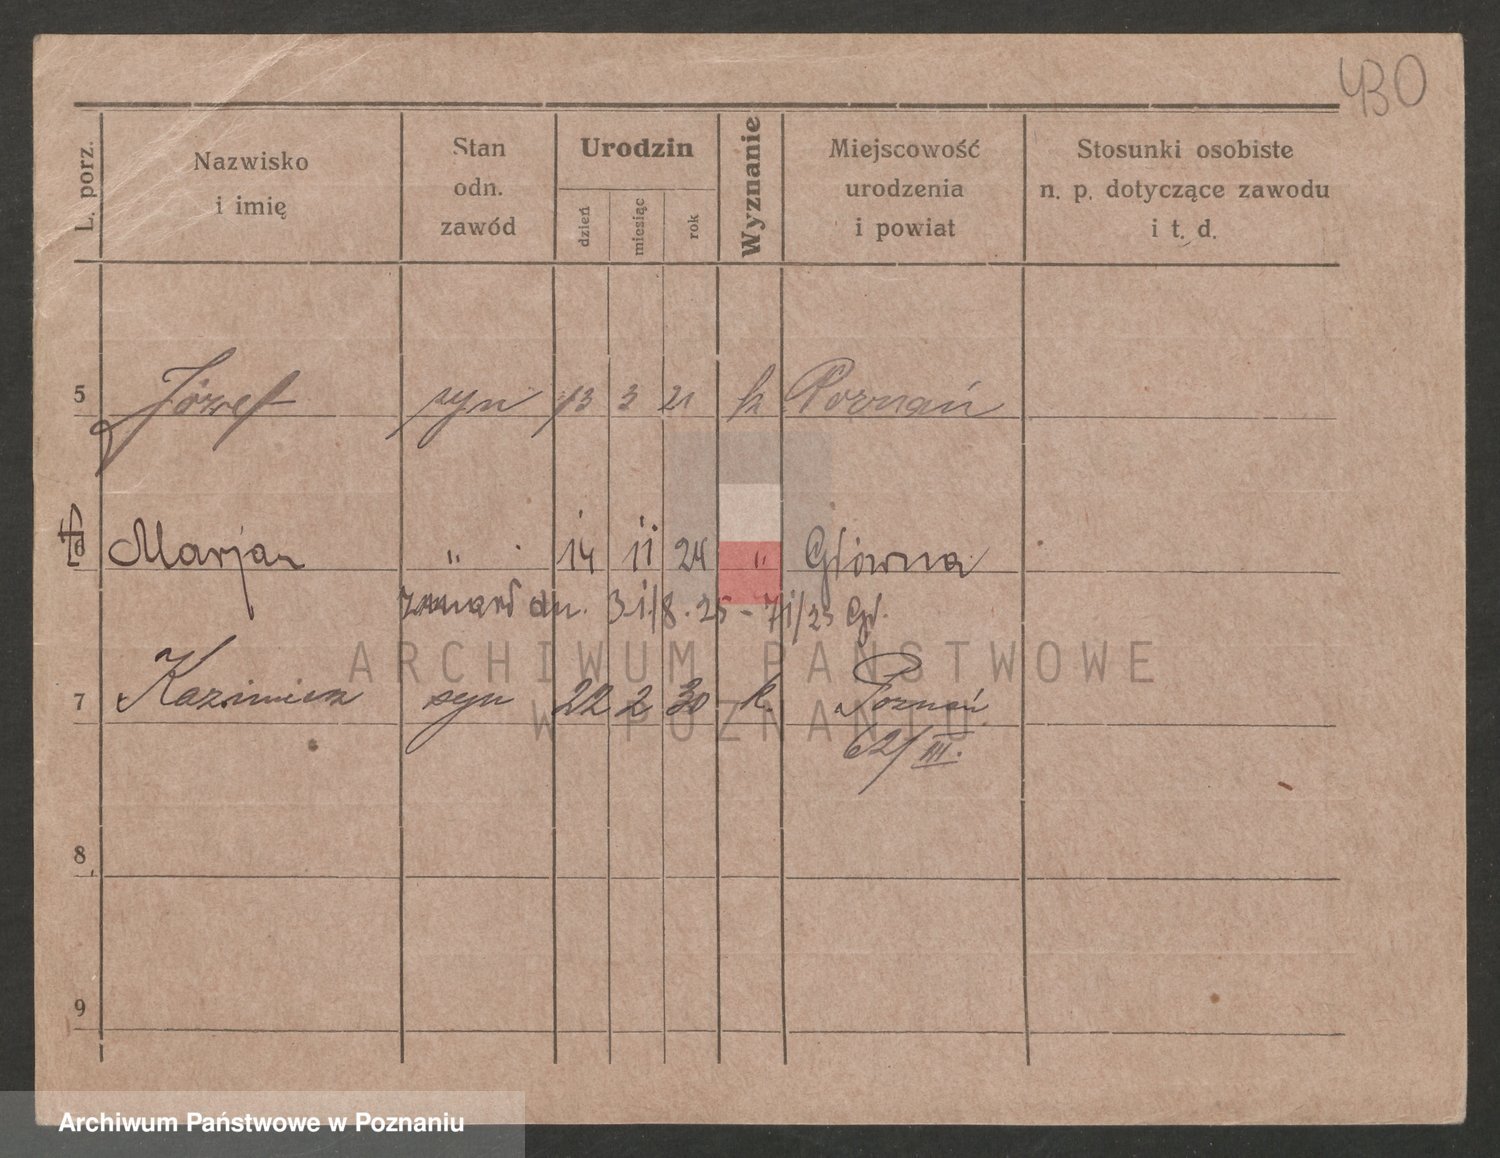 430
L. porz. Nazwisko i imię Stan odn. zawód Urodzin dzień miesiąc rok Wyznanie Miejscowość urodzenia i powiat Stosunki osobiste n. p. dotyczące zawodu i t. d.
5 Józef syn 13 3 21 k Poznań
6 Marjan " 14 11 24 " Główna
zmarł dn. 31/8. 25 - 71/25 Gł.
ARCHIWUM PAŃSTWOWE
7 Kazimierz syn 22 2 30 k. Poznań
W POZNANIU
62/III.
8
9
Archiwum Państwowe w Poznaniu